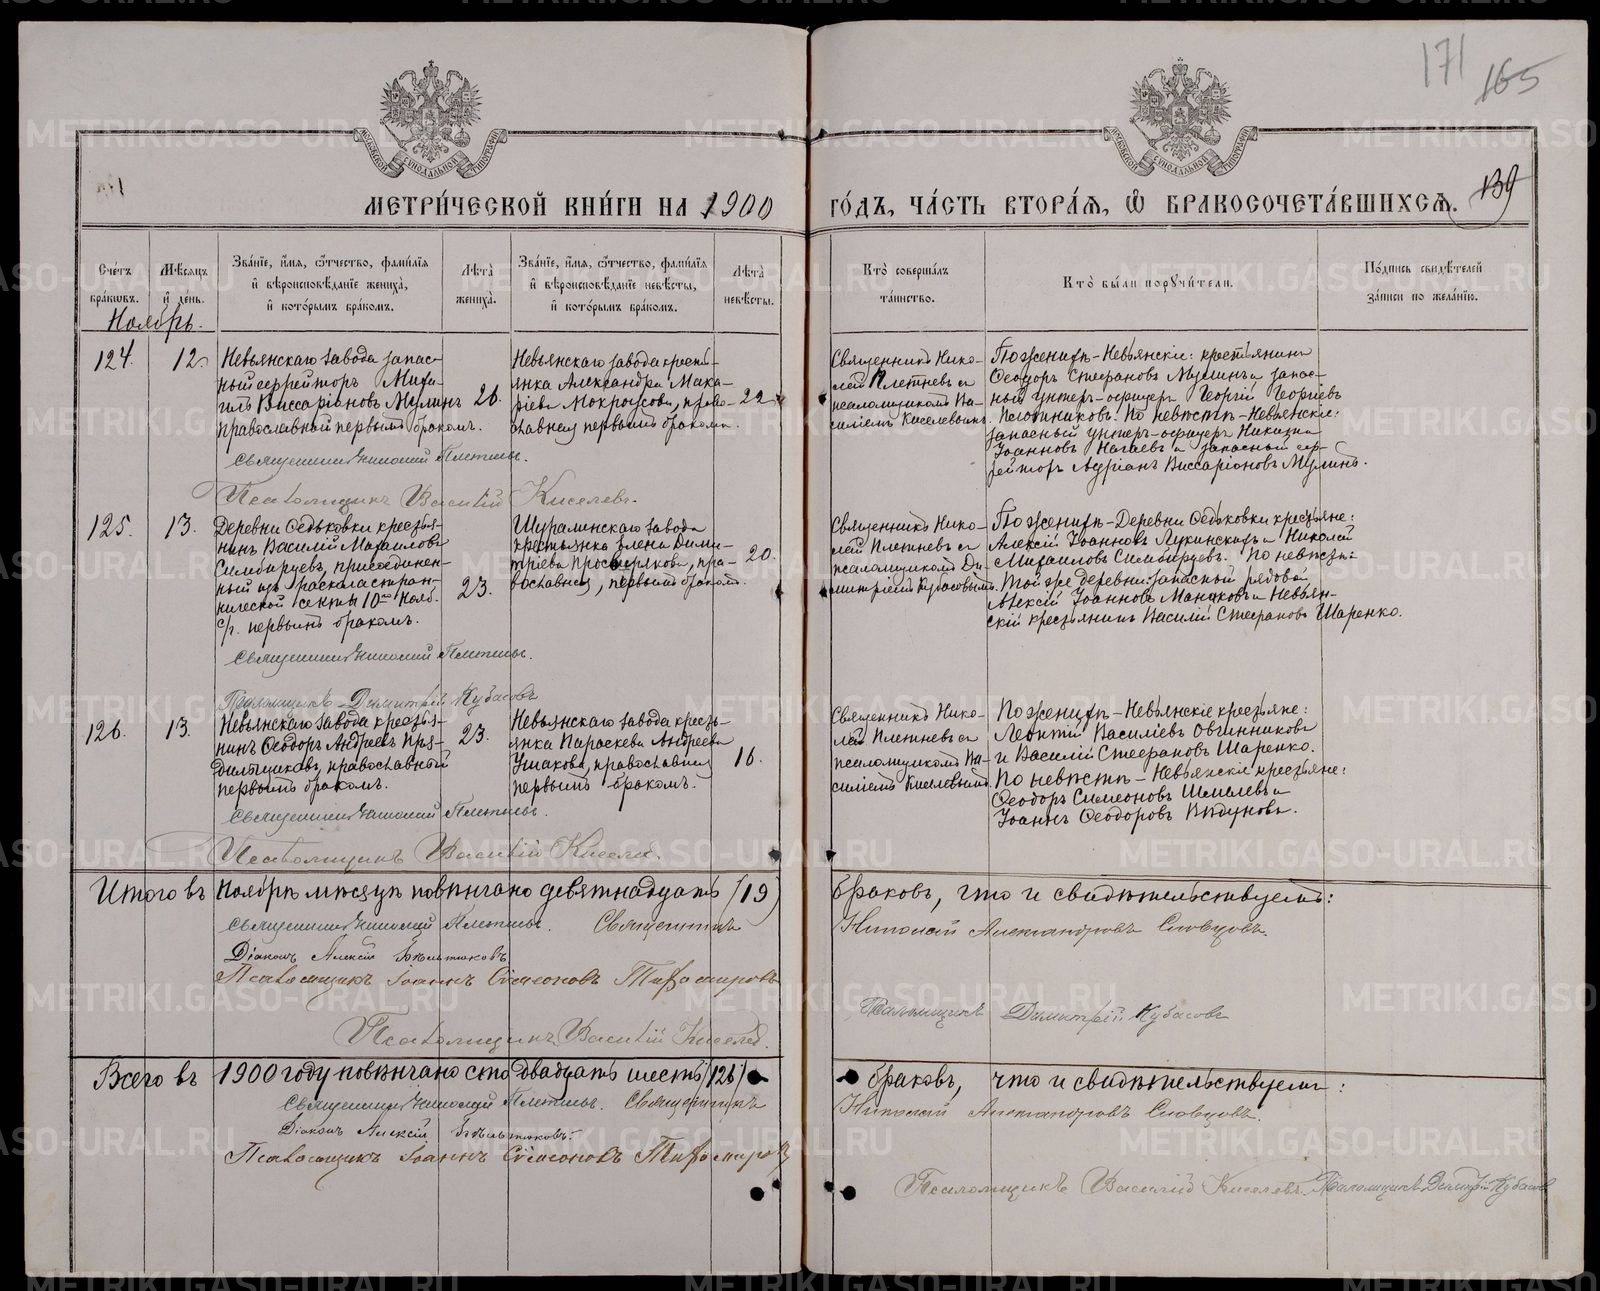 171 165
139
МЕТРИ́ЧЕСКОЙ КНИ́ГИ НА 1900
ГО́ДЪ, ЧА́СТЬ ВТОРА́Я, Ѿ БРАКОСОЧЕТА́ВШИХСЯ.
Сче́тъ бра́ковъ.
Мѣ́сяцъ и҆ де́нь.
Зва́нїе, и҆́мя, ѻ҆́тчество, фами́лїя и҆ вѣроисповѣ́данїе жениха̀, и҆ кото́рымъ бра́комъ.
Лѣ́та жениха̀.
Зва́нїе, и҆́мя, ѻ҆́тчество, фами́лїя и҆ вѣроисповѣ́данїе невѣ́сты, и҆ кото́рымъ бра́комъ.
Лѣ́та невѣ́сты.
Кто̀ соверша́лъ та́инство.
Кто̀ бы́ли поручи́тели.
По́дпись свидѣ́телей за́писи по жела́нїю.
Ноябрь.
124.
12.
Невьянскаго завода запас-
ный ефрейторъ Миха-
илъ Виссаріоновъ Мулинъ
православный первымъ бракомъ.
26.
Невьянскаго завода кресть-
янка Александра Мака-
ріева Мокроусова, право-
славная первымъ бракомъ.
22
Священникъ Нико-
лай Плетневъ съ
псаломщикомъ Ва-
силіемъ Киселевымъ.
По женихѣ – Невьянскіе: крестьянинъ
Ѳеодоръ Стефановъ Мулинъ и запас-
ный унтеръ-офицеръ Георгій Георгіевъ
Плотниковъ. По невѣстѣ – Невьянскіе:
запасный унтеръ-офицеръ
Іоанновъ Нагаевъ и запасный еф-
рейторъ Адріанъ Виссаріоновъ Мулинъ.
Священникъ Николай Плетневъ.
Псаломщикъ Василій Киселевъ.
125.
13.
Деревни Ѳедьковки крестья-
нинъ Василій Михаиловъ
Симбирцевъ, присоединен-
ный изъ раскола стран-
нической секты 10го Нояб.
с/г. первымъ бракомъ.
23.
Шуралинскаго завода
крестьянка Елена Дими-
тріева Просвирякова, пра-
вославная, первымъ бракомъ.
20.
Священникъ Нико-
лай Плетневъ съ
псаломщикомъ Ди-
митріемъ Кубасовымъ.
По женихѣ – Деревни Ѳедьковки крестьяне:
Алексій Іоанновъ Лукинскихъ и Николай
Михаиловъ Симбирцевъ. По невѣстѣ:
Той же деревни: запасной рядовой
Алексій Іоанновъ Маньковъ и Невьян-
скій крестьянинъ Василій Стефановъ Шаренко.
Священникъ Николай Плетневъ.
Псаломщикъ Димитрій Кубасовъ
126.
13.
Невьянскаго завода крестья-
нинъ Ѳеодоръ Андреевъ Пря-
дильщиковъ, православный
первымъ бракомъ.
23.
Невьянскаго завода кресть-
янка Параскева Андреева
Ушакова, православная
первымъ бракомъ.
16.
Священникъ Нико-
лай Плетневъ съ
псаломщикомъ Ва-
силіемъ Киселевымъ.
По женихѣ – Невьянскіе крестьяне:
Леонтій Василіевъ Овчинниковъ
и Василій Стефановъ Шаренко.
По невѣстѣ – Невьянскіе крестьяне:
Ѳеодоръ Симеоновъ Шмелевъ и
Іоаннъ Ѳеодоровъ
Священникъ Николай Плетневъ.
Псаломщикъ Василій Киселевъ.
Итого въ Ноябрѣ мѣсяцѣ повѣнчано девятнадцать (19)
браковъ, что и свидѣтельствуемъ:
Священникъ Николай Плетневъ. Священникъ
Николай Александровъ Словцовъ.
Діаконъ Алексій Бѣльтюковъ
Псаломщикъ Іоаннъ Симеоновъ Тихомировъ
Псаломщикъ Димитрій Кубасовъ
Псаломщикъ Василій Киселевъ.
Всего въ 1900 году повѣнчано сто двадцать шесть (126)
браковъ, что и свидѣтельствуемъ:
Священникъ Николай Плетневъ. Священникъ
Николай Александровъ Словцовъ.
Діаконъ Алексій Бѣльтюковъ.
Псаломщикъ Іоаннъ Симеоновъ Тихомировъ
Псаломщикъ Василій Киселевъ. Псаломщикъ Димитрій Кубасовъ
METRIKI.GASO-URAL.RU